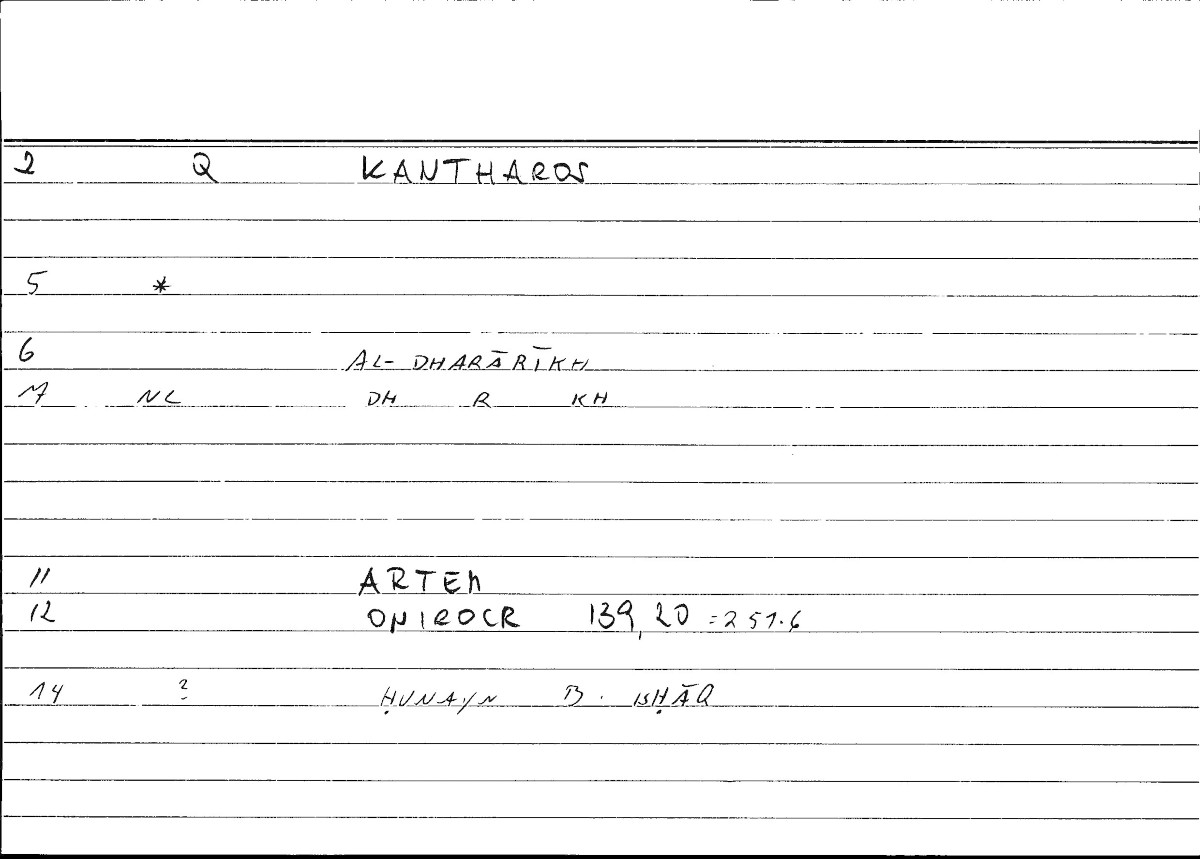 2 Q KANTHAROS
5 *
6 AL-DHARĀRĪKH
7 NL DH R KH
11 ARTEM
12 ONIROCR 139,20 =251.6
14 ? ḤUNAYN B. ISḤĀQ